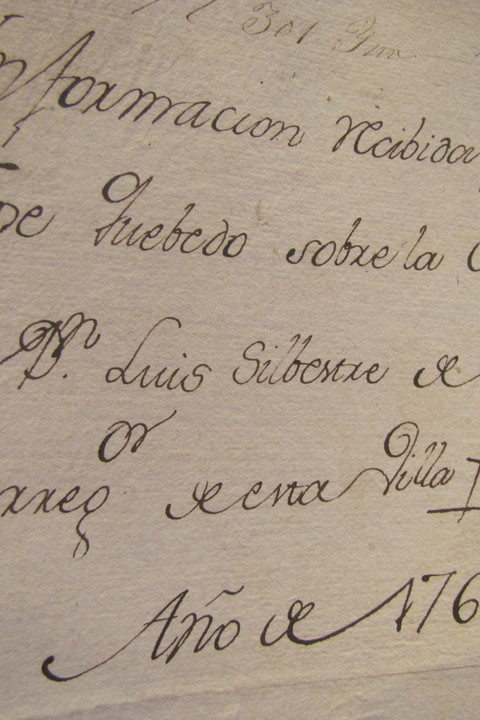 301
nformacion recibida
De Quebedo sobre la
Dn. Luis Silbestre de
rregor de esta Villa
Año de 176